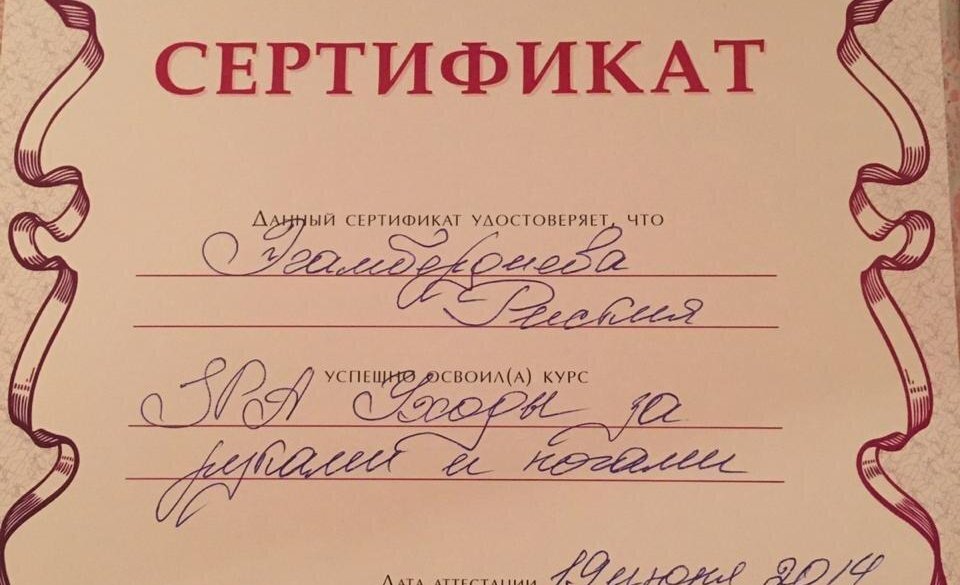 СЕРТИФИКАТ
Данный сертификат удостоверяет, что
Эгамбердиева
УСПЕШНО ОСВОИЛ(А) КУРС
SPA Уходы за
руками и ногами
Дата аттестации 19 июня 2014